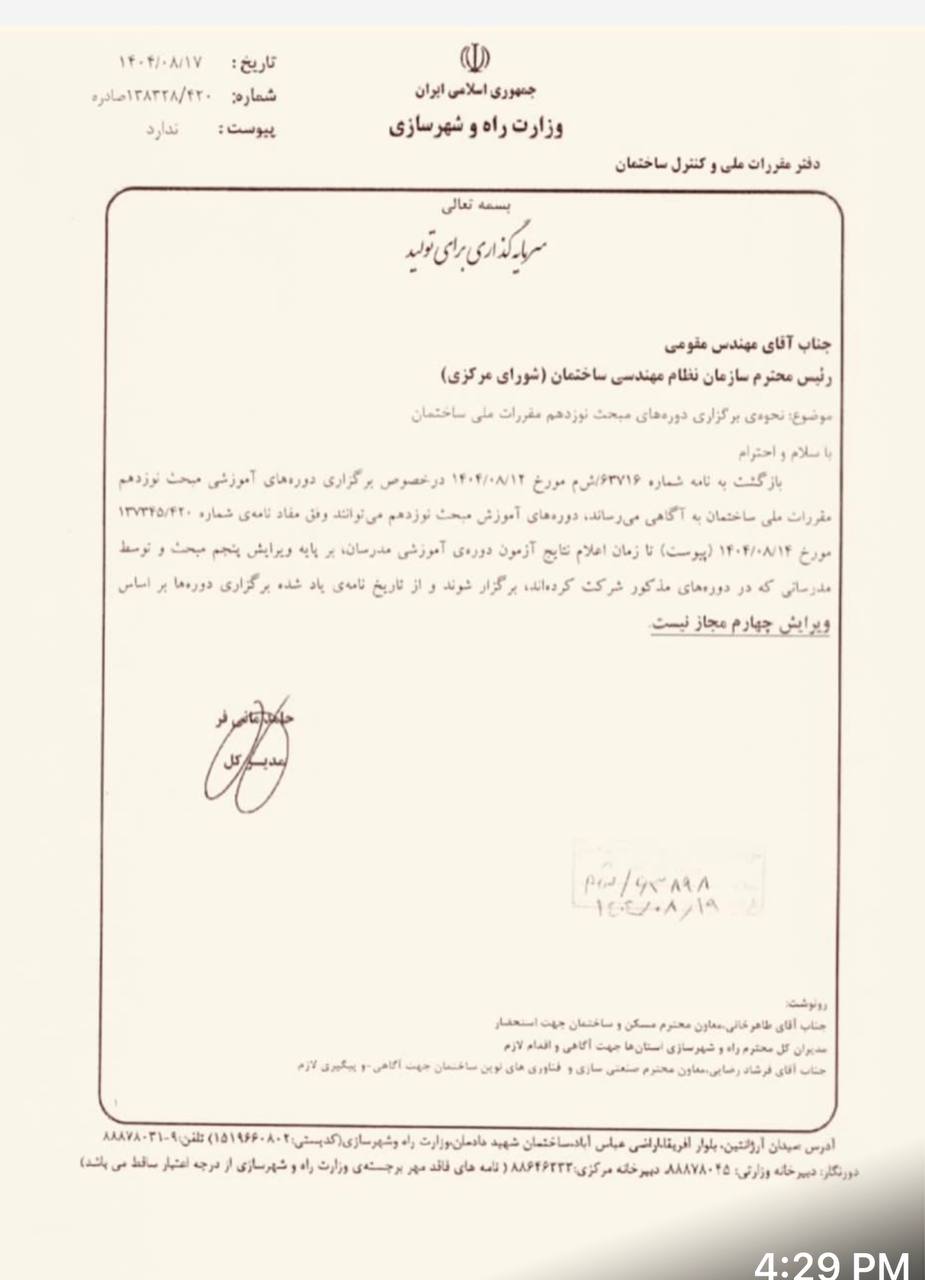 جمهوری اسلامی ایران
وزارت راه و شهرسازی
دفتر مقررات ملی و کنترل ساختمان
تاریخ: ۱۴۰۴/۰۸/۱۷
شماره: ۱۳۸۳۲۸/۴۲۰صادره
پیوست: ندارد
بسمه تعالی
سرمایه گذاری برای تولید
جناب آقای مهندس مقومی
رئیس محترم سازمان نظام مهندسی ساختمان (شورای مرکزی)
موضوع: نحوه‌ی برگزاری دوره‌های مبحث نوزدهم مقررات ملی ساختمان
با سلام و احترام
بازگشت به نامه شماره ۶۳۷۱۶/ش‌م مورخ ۱۴۰۴/۰۸/۱۲ درخصوص برگزاری دوره‌های آموزشی مبحث نوزدهم
مقررات ملی ساختمان به آگاهی می‌رساند، دوره‌های آموزش مبحث نوزدهم می‌توانند وفق مفاد نامه‌ی شماره ۱۳۷۳۴۵/۴۲۰
مورخ ۱۴۰۴/۰۸/۱۴ (پیوست) تا زمان اعلام نتایج آزمون دوره‌ی آموزشی مدرسان، بر پایه ویرایش پنجم مبحث و توسط
مدرسانی که در دوره‌های مذکور شرکت کرده‌اند، برگزار شوند و از تاریخ نامه‌ی یاد شده برگزاری دوره‌ها بر اساس
ویرایش چهارم مجاز نیست.
حامد مانی فر
مدیر کل
۶۳۸۹۸/ش‌م
۱۴۰۴/۰۸/۱۹
رونوشت:
جناب آقای طاهرخانی،معاون محترم مسکن و ساختمان جهت استحضار
مدیران کل محترم راه و شهرسازی استان‌ها جهت آگاهی و اقدام لازم
جناب آقای فرشاد رضایی،معاون محترم صنعتی سازی و فناوری های نوین ساختمان جهت آگاهی -و پیگیری لازم
۱
آدرس :میدان آرژانتین، بلوار آفریقا،اراضی عباس آباد،ساختمان شهید دادمان،وزارت راه وشهرسازی(کدپستی:۱۵۱۹۶۶۰۸۰۲) تلفن:۹-۸۸۸۷۸۰۳۱
دورنگار: دبیرخانه وزارتی: ۸۸۸۷۸۰۴۵، دبیرخانه مرکزی:۸۸۶۴۶۳۳۳ ( نامه های فاقد مهر برجسته‌ی وزارت راه و شهرسازی از درجه اعتبار ساقط می باشد)
4:29 PM